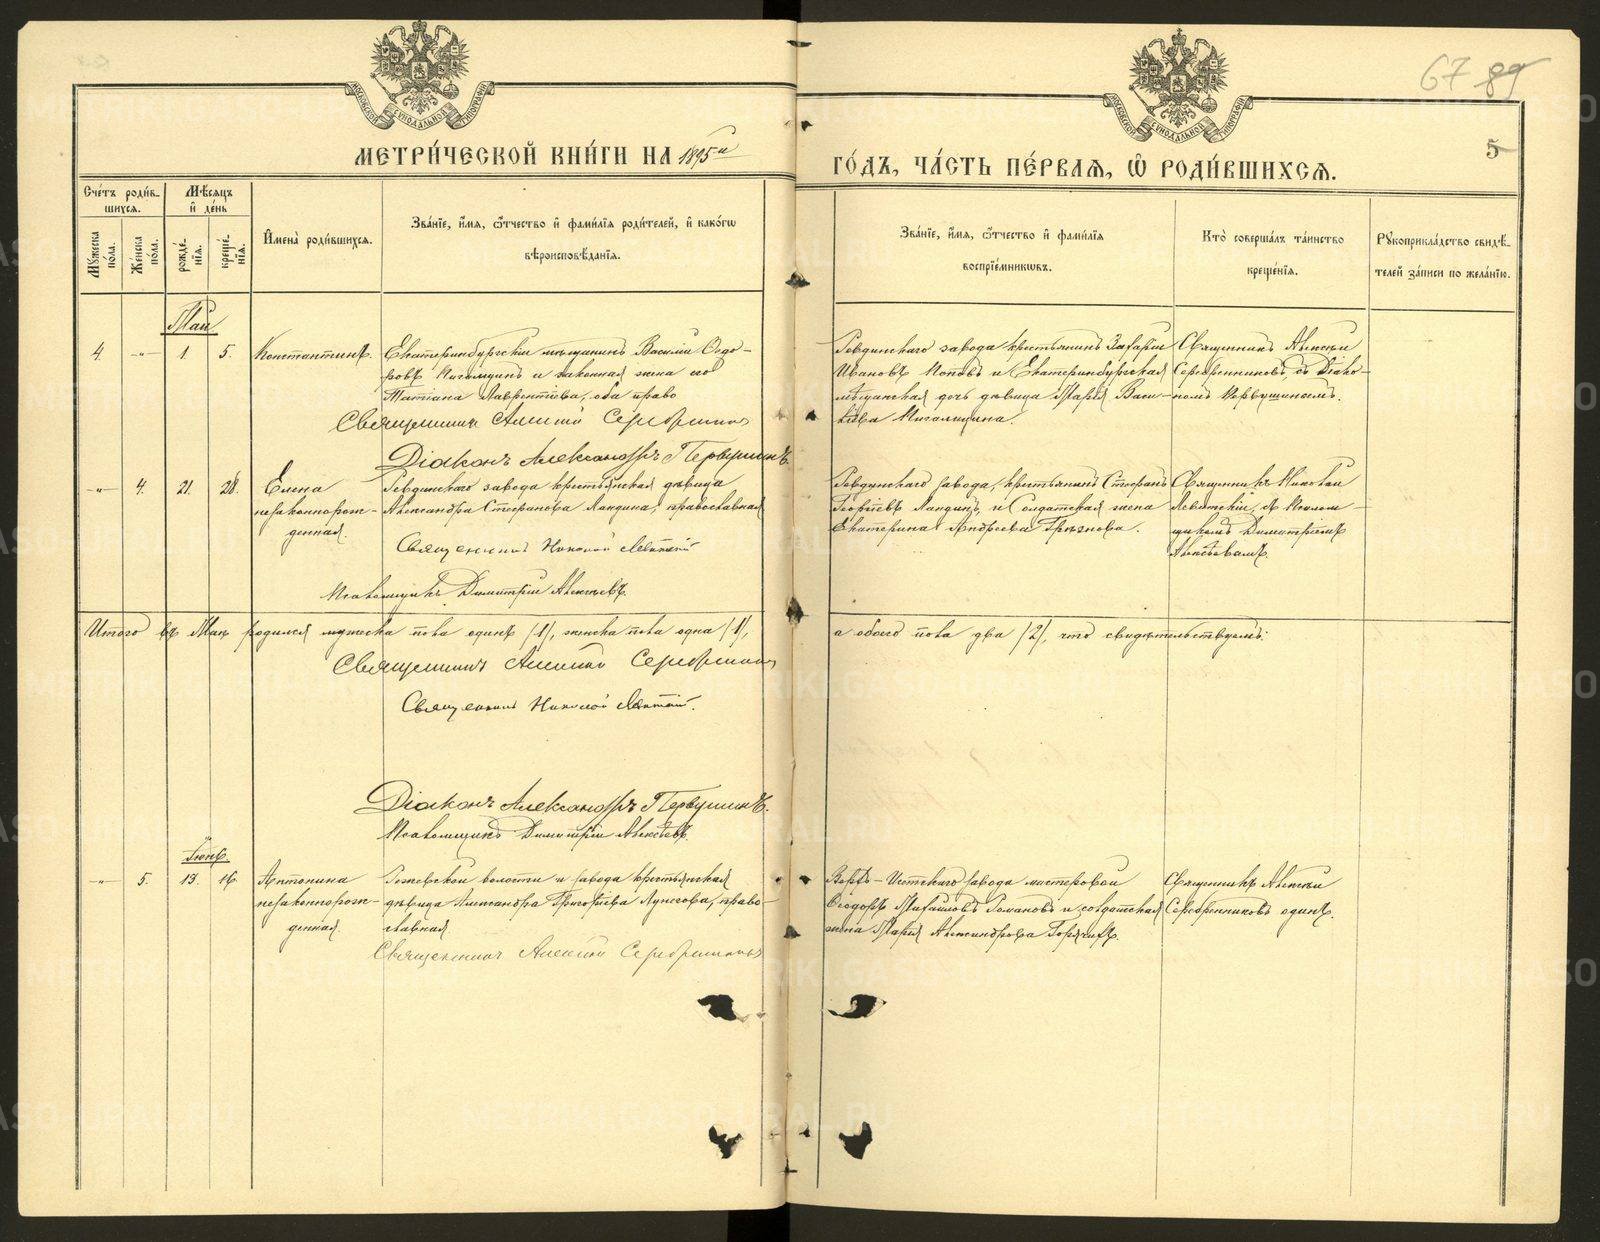 МОСКОВСКОЙ СѴНОДАЛЬНОЙ ТИПОГРАФІИ
МОСКОВСКОЙ СѴНОДАЛЬНОЙ ТИПОГРАФІИ
67 89
5
МЕТРИ́ЧЕСКОЙ КНИ́ГИ НА 1895й
ГО́ДЪ, ЧА́СТЬ ПЕ́РВАѦ, Ѽ РОДИ́ВШИХСѦ.
Сче́тъ роди́в-
шихсѧ.
Мꙋ́жеска по́ла.
Же́нска по́ла.
Мѣ́сѧцъ
и҆ де́нь
рожде́-
нїѧ.
креще́-
нїѧ.
И҆мена̀ роди́вшихсѧ.
Зва́нїе, и҆́мѧ, ѻ҆́тчество и҆ фами́лїѧ роди́телей, и҆ како́гѡ
вѣроисповѣ́данїѧ.
Зва́нїе, и҆́мѧ, ѻ҆́тчество и҆ фами́лїѧ
воспрїе́мникѡвъ.
Кто̀ соверша́лъ та́инство
креще́нїѧ.
Рꙋкоприкла́дство свидѣ́-
телей за́писи по жела́нїю.
Май
4. -„- 1. 5. Константинъ. Екатеринбургскій мѣщанинъ Василій Ѳедо-
ровъ и законная жена его
Татіана Лаврентіева, оба право
Священникъ Алексій Серебренниковъ
Діаконъ Александръ Первушинъ
Ревдинскаго завода крестьянинъ Захарій
Ивановъ Поповъ и Екатеринбургская
мѣщанская дочь дѣвица Марія Васи-
ліева
Священникъ Алексій
Серебренниковъ съ Діако-
номъ Первушинымъ.
-„- 4. 21. 28. Елена
незаконнорож-
денная.
Ревдинскаго завода крестьянская дѣвица
Александра Стефанова Ландина, православная
Священникъ Николай Левитскій
Псаломщикъ Димитрій Алексѣевъ.
Ревдинскаго завода, крестьянинъ Стефанъ
Георгіевъ Ландинъ, и Солдатская жена
Екатерина Андреева Грязнова.
Священникъ Николай
Левитскій, съ Псалом-
щикомъ Димитріемъ
Алексѣевымъ.
Итого въ Маѣ родился мужеска пола одинъ (1), женска пола одна (1),
а обоего пола два (2), что свидѣтельствуемъ:
Священникъ Алексій Серебренниковъ
Священникъ Николай Левитскій.
Діаконъ Александръ Первушинъ.
Псаломщикъ Димитрій Алексѣевъ.
Іюнь.
-„- 5. 13. 16. Антонина
незаконнорож-
денная.
волости и завода крестьянская
дѣвица Александра Григоріева право-
славная.
Священникъ Алексій Серебренниковъ
Верхъ-Исетскаго завода мастеровой
Ѳеодоръ Михаиловъ Романовъ и солдатская
жена Марія Александрова
Священникъ Алексій
Серебренниковъ единъ.
METRIKI.GASO-URAL.RU